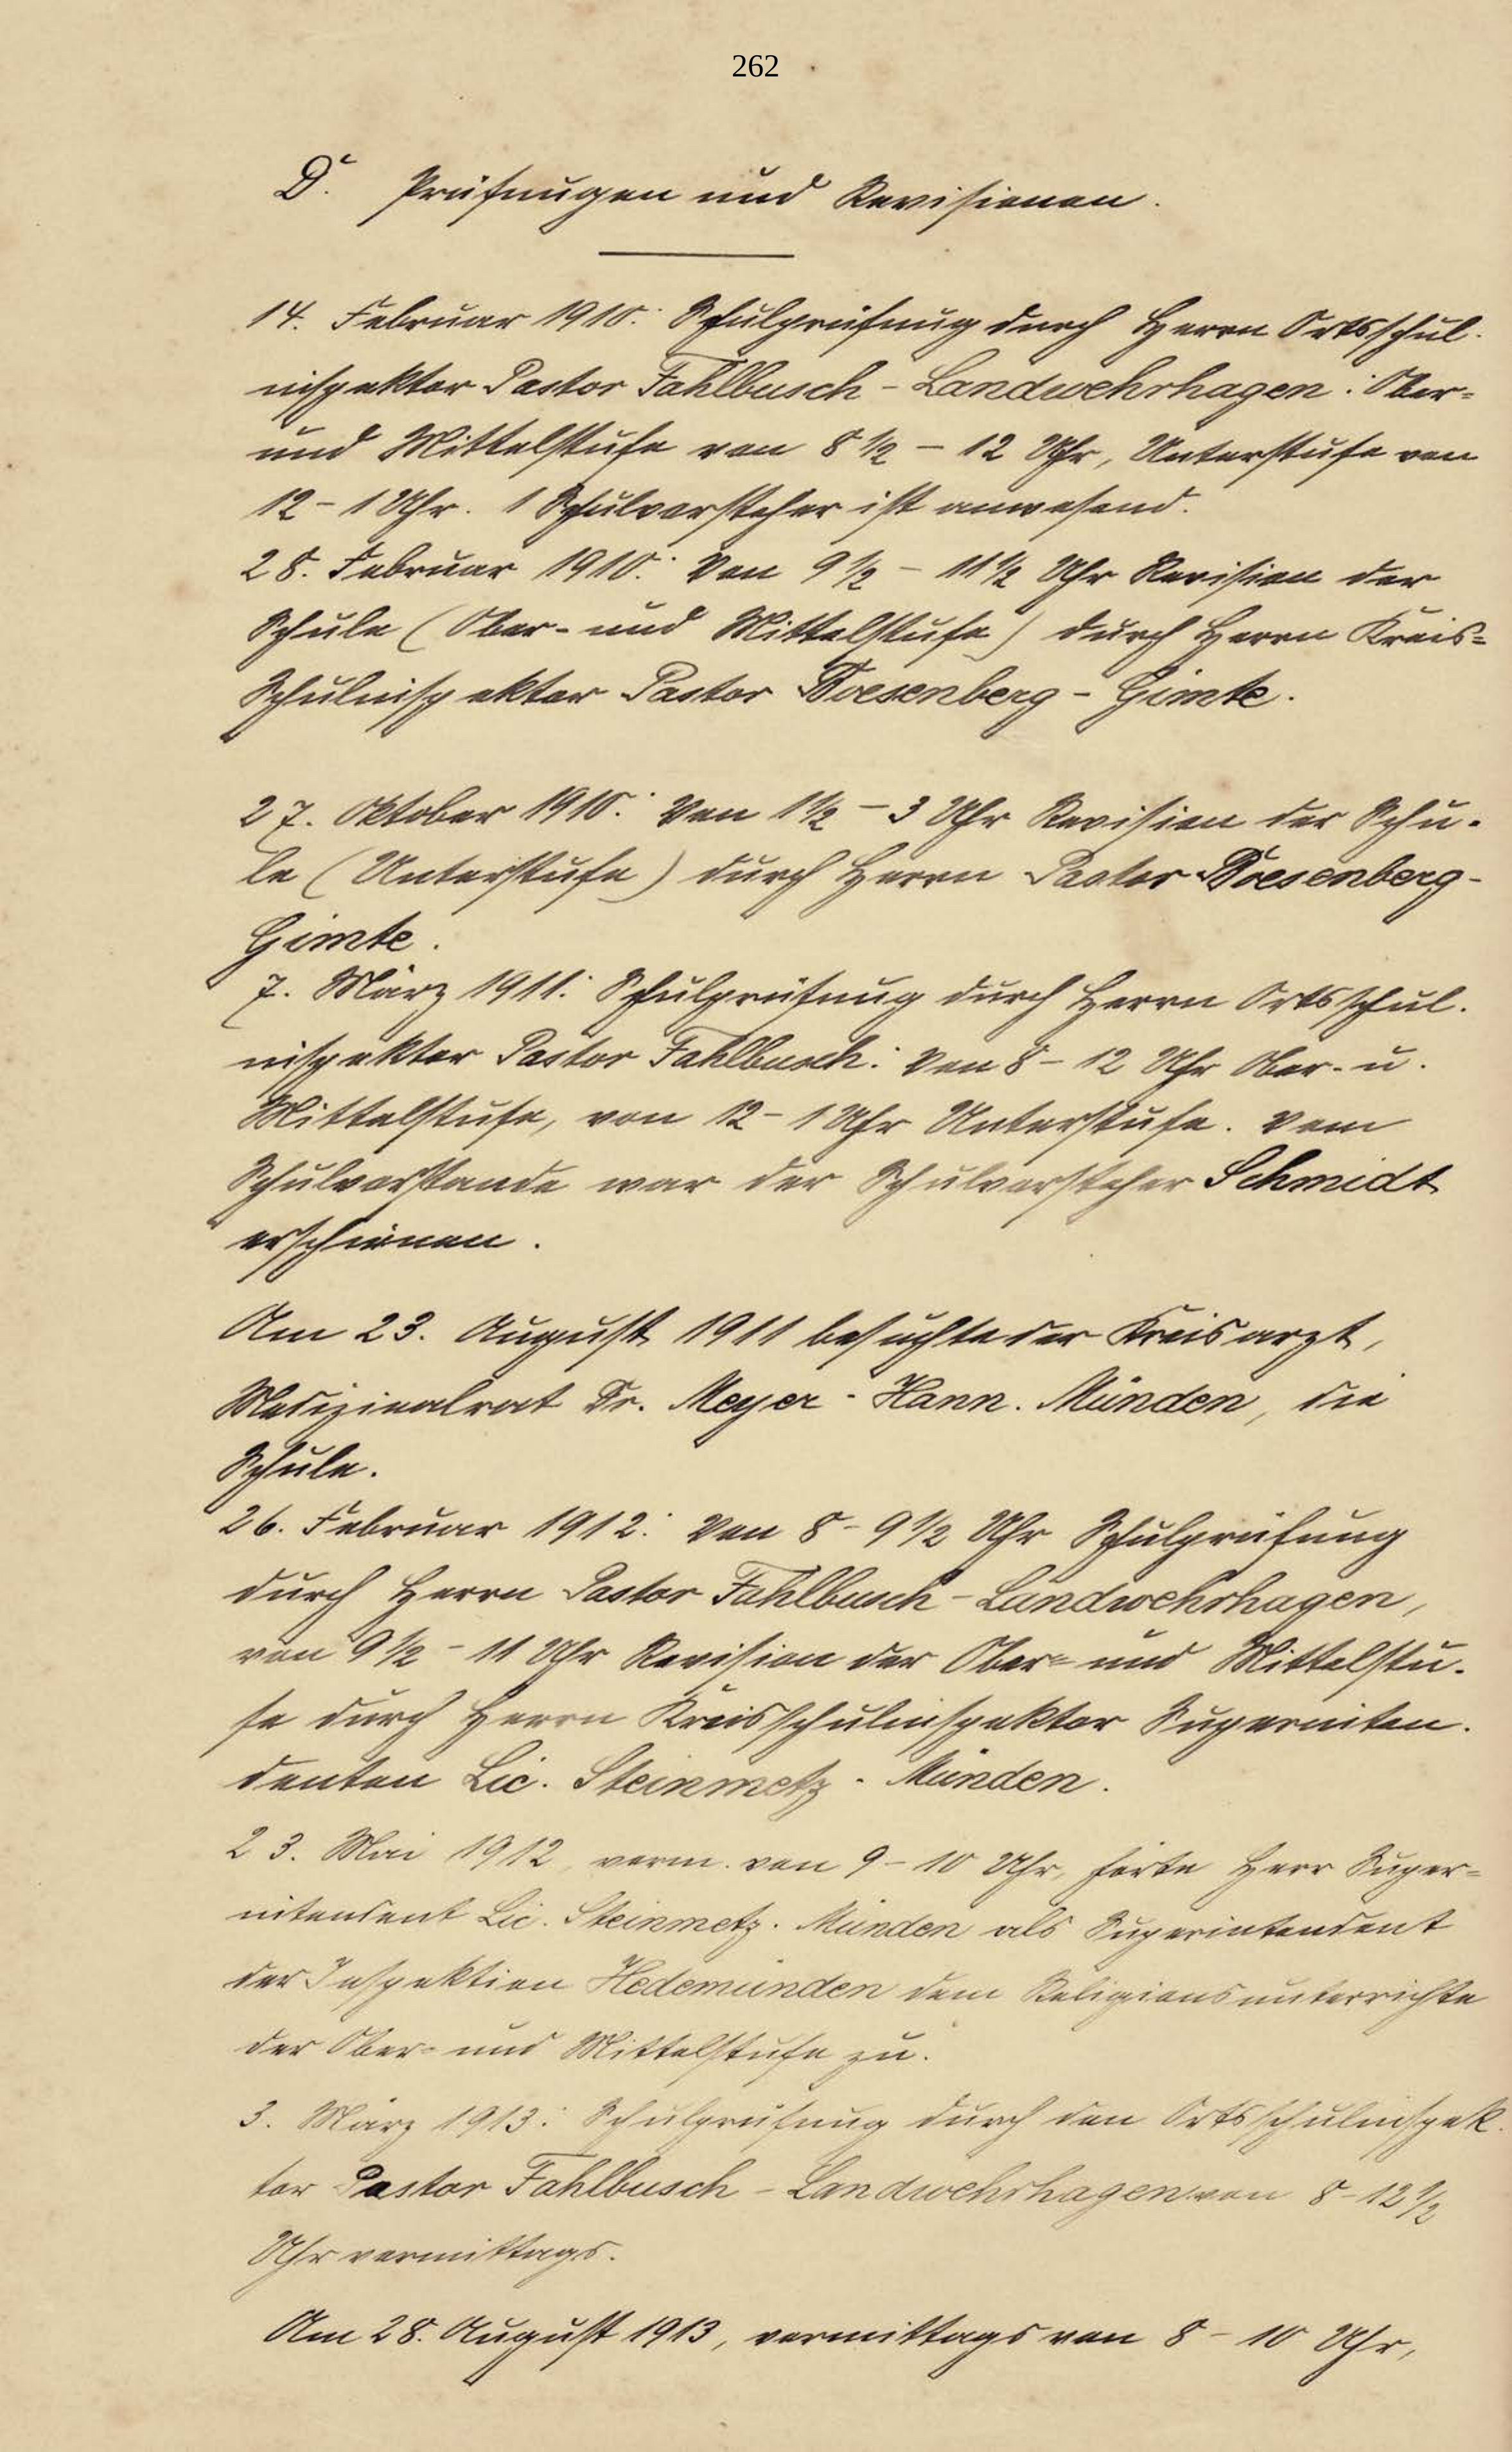 262
D. Prüfungen und Revisionen.
14. Februar 1910: Schulprüfung durch Herrn Ortsschul-
inspektor Pastor Fahlbusch - Landwehrhagen: Ober-
und Mittelstufe von 8 1/2 - 12 Uhr, Unterstufe von
12 - 1 Uhr. 1 Schulvorsteher ist anwesend.
28. Februar 1910: Von 9 1/2 - 11 1/2 Uhr Revision der
Schule (Ober- und Mittelstufe) durch Herrn Kreis-
Schulinspektor Pastor Woesenberg - Gimte.
27. Oktober 1910: Von 1 1/2 - 3 Uhr Revision der Schu-
le (Unterstufe) durch Herrn Pastor Woesenberg -
Gimte.
7. März 1911: Schulprüfung durch Herrn Ortsschul-
inspektor Pastor Fahlbusch: Von 8 - 12 Uhr Ober- u.
Mittelstufe, von 12 - 1 Uhr Unterstufe. Vom
Schulvorstande war der Schulvorsteher Schmidt
erschienen.
Am 23. August 1911 besuchte der Kreisarzt,
Medizinalrat Dr. Meyer - Hann. Münden, die
Schule.
26. Februar 1912: Von 8 - 9 1/2 Uhr Schulprüfung
durch Herrn Pastor Fahlbusch - Landwehrhagen,
von 9 1/2 - 11 Uhr Revision der Ober- und Mittelstu-
fe durch Herrn Kreisschulinspektor Superinten-
denten Lic. Steinmetz - Münden.
23. Mai 1912, vorm. von 9 - 10 Uhr, hörte Herr Super-
intendent Lic. Steinmetz - Münden als Superintendent
der Inspektion Hedemünden dem Religionsunterrichte
der Ober- und Mittelstufe zu.
3. März 1913: Schulprüfung durch den Ortsschulinspek-
tor Pastor Fahlbusch - Landwehrhagen von 8 - 12 1/2
Uhr vormittags.
Am 28. August 1913, vormittags von 8 - 10 Uhr,